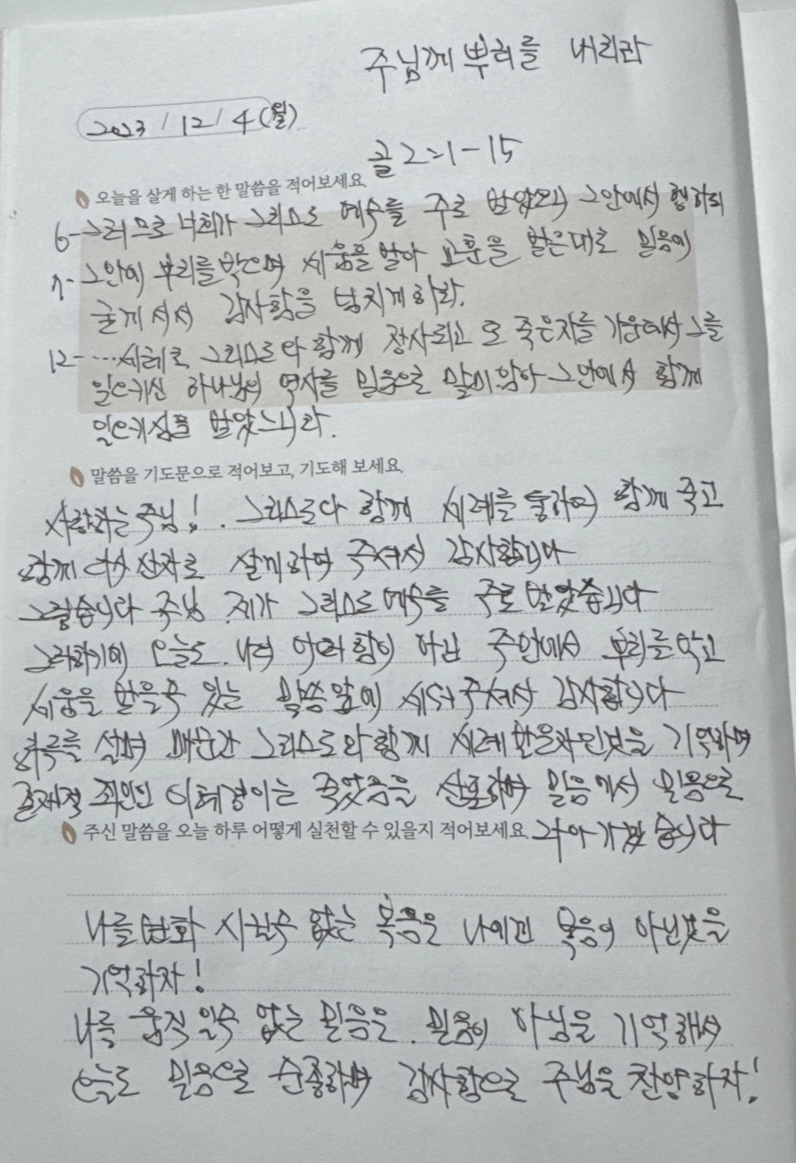 주님께 뿌리를 내리라
2023 / 12 / 4 (월)
골 2:1-15
오늘을 살게 하는 한 말씀을 적어보세요.
6- 그러므로 너희가 그리스도 예수를 주로 받았으니 그안에서 행하되
7- 그안에 뿌리를 박으며 세움을 받아 교훈을 받은대로 믿음에
굳게 서서 감사함을 넘치게하라.
12- ...세례로 그리스도와 함께 장사되고 또 죽은자들 가운데서 그를
일으키신 하나님의 역사를 믿음으로 말미암아 그안에서 함께
일으키심을 받았느니라.
말씀을 기도문으로 적어보고, 기도해 보세요.
사랑하는 주님!. 그리스도와 함께 세례를 통하여 함께 죽고
함께 다시 산자로 살게하여 주셔서 감사합니다
그렇습니다 주님 제가 그리스도 예수를 주로 받았습니다
그러하기에 오늘도 나의 어떠함이 아닌 주안에서 뿌리를 박고
세움을 받을수 있는 말씀앞에 세워주셔서 감사합니다
하루를 살며 매순간 그리스도와 함께 세례받은자인것을 기억하며
존재적 죄인인 이혜경이는 죽었음을 선포하며 믿음에서 믿음으로
주신 말씀을 오늘 하루 어떻게 실천할 수 있을지 적어보세요. 나아가겠습니다
나를 변화 시킬수 없는 복음은 나에겐 복음이 아닌것을
기억하자!
나를 움직일수 없는 믿음은. 믿음이 아님을 기억해서
오늘도 믿음으로 순종하며 감사함으로 주님을 찬양하자!